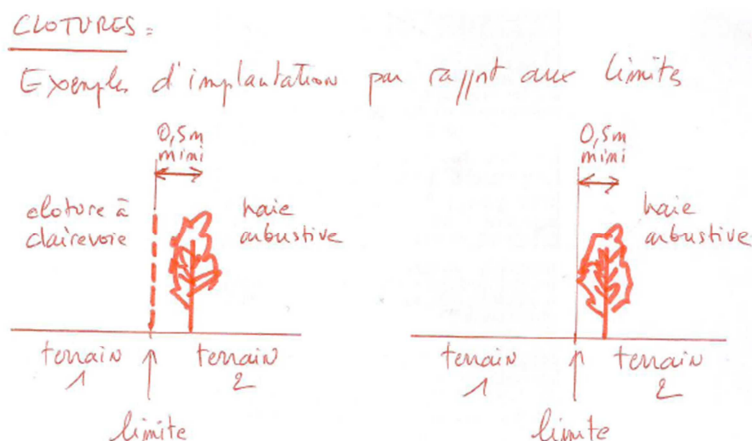 CLOTURES :
Exemples d'implantation par rapport aux limites
0,5m
mini
cloture à
clairevoie
haie
arbustive
terrain
1
terrain
2
limite
0,5m
mini
haie
arbustive
terrain
1
terrain
2
limite